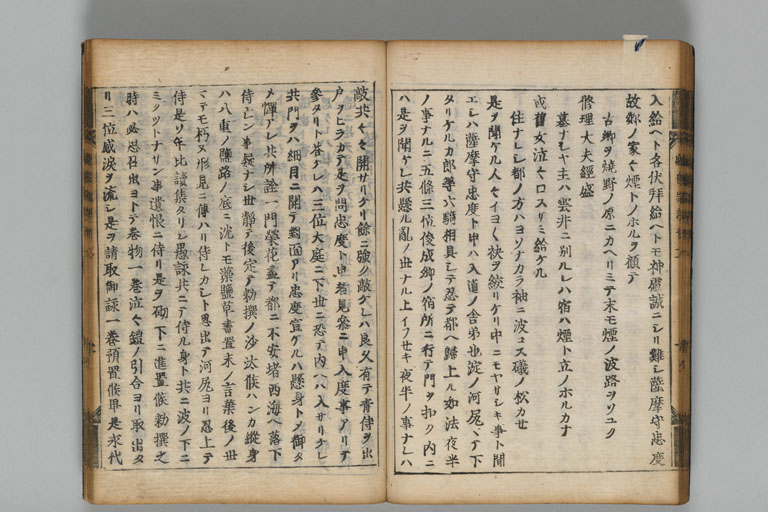 入給ヘト各伏拜給ヘトモ神慮誠ニシリ難シ薩摩守忠度
故郷ノ家々煙トノホルヲ顧テ
古郷ヲ燒野ノ原ニカヘリミテ末モ煙ノ波路ヲソユク
修理大夫經盛
墓ナシヤ主ハ雲井ニ別ルレハ宿ハ煙ト立ノホルカナ
或舊女泣々ロスサミ給ケル
住ナレシ都ノ方ハヨソナカラ袖ニ波コス磯ノ松カセ
是ヲ聞ケル人々イヨ〱袂ヲ絞リケリ中ニモヤサシキ事ト聞
エシハ薩摩守忠度ト申ハ入道ノ舎弟也淀ノ河尻マテ下
タリケルカ郎等六騎相具シテ忍テ都ヘ歸上ル如法夜半
ノ事ナルニ五條三位俊成卿ノ宿所ニ行テ門ヲ扣ク内ニ
ハ是ヲ聞ケレ共懸ル亂ノ世ナル上イフセキ夜半ノ事ナレハ
敲共々々開サリケリ餘ニ強ク敲ケレハ良久有テ青侍ヲ出
戸ヲヒラカテ是ヲ問忠度ト申者見參ニ申入度事アリテ
參タリト答ケレハ三位大庭ニ下世ニ恐テ内ヘハ入サリケレ
共門ヲハ細目ニ開テ對面アリ忠度宣ケルハ懸身トノ御タ
メ憚アレ共所詮一門榮花盡テ都ニ不安堵西海ヘ落下
侍亡ン事疑ナシ世靜テ後定テ勅撰ノ沙汰候ハンカ縱身
ハ八重ノ鹽路ノ底ニ沈トモ藻鹽草書置末ノ言葉後ノ世
マテモ朽ヌ形見ニ傳ハリ侍レカシト思出テ河尻ヨリ忍上テ
侍是ソ年比讀集タリシ愚詠共ニテ侍ル身ト共ニ波ノ下ニ
ミクツトナサン事遺恨ニ侍リ是ヲ砌下ニ進置候勅撰之
時ハ必思召出ヨトテ卷物一卷泣々鎧ノ引合ヨリ取出タ
リ三位感涙ヲ流シ是ヲ請取御詠一卷預置候畢是永代